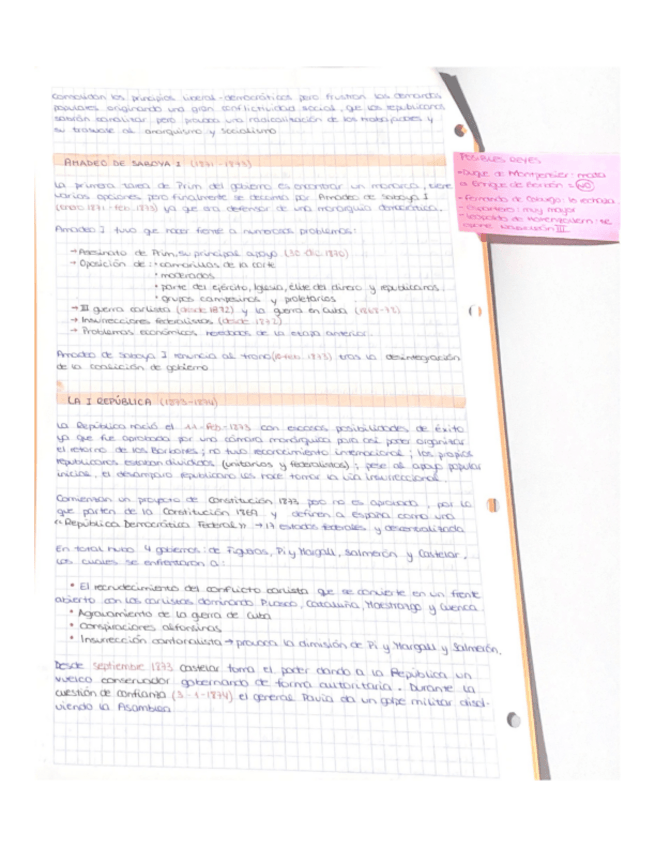 consolidan los principios liberal-democráticos pero frustran las demandas
populares originando una gran conflictividad social, que los republicanos
sabrán canalizar pero provoca una radicalización de los trabajadores y
su trasvase al anarquismo y socialismo
AMADEO DE SABOYA I (1871-1873)
La primera tarea de Prim del gobierno es encontrar un monarca, tiene
varias opciones pero finalmente se decanta por Amadeo de Saboya I
(enero 1871-feb. 1873) ya que era defensor de una monarquía democrática.
Amadeo I tuvo que hacer frente a numerosos problemas:
→ Asesinato de Prim, su principal apoyo (30 dic. 1870)
→ Oposición de: • camarillas de la corte
• moderados
• parte del ejército, Iglesia, élite del dinero y republicanos
• grupos campesinos y proletarios
→ III guerra carlista (desde 1872) y la guerra en Cuba (1868-78)
→ Insurrecciones federalistas (desde 1872)
→ Problemas económicos heredados de la etapa anterior.
Amadeo de Saboya I renuncia al trono (10 feb. 1873) tras la desintegración
de la coalición de gobierno
LA I REPÚBLICA (1873-1874)
La República nació el 11-feb-1873 con escasas posibilidades de éxito
ya que fue aprobada por una cámara monárquica para así poder organizar
el retorno de los Borbones; no tuvo reconocimiento internacional; los propios
republicanos estaban divididos (unitarios y federalistas); pese al apoyo popular
inicial, el desamparo republicano les hace tomar la vía insurreccional.
Comienzan un proyecto de Constitución 1873 pero no es aprobada, por lo
que parten de la Constitución 1869 y definen a España como una
"República Democrática Federal» → 17 estados federales y descentralizada
En total hubo 4 gobiernos: de Figueras, Pi y Margall, Salmerón y Castelar,
los cuales se enfrentaron a:
• El recrudecimiento del conflicto carlista que se convierte en un frente
abierto con los carlistas dominando P. Vasco, Cataluña, Maestrazgo y Cuenca.
• Agravamiento de la guerra de Cuba
• Conspiraciones alfonsinas
• Insurrección cantonalista → provoca la dimisión de Pi y Margall y Salmerón.
Desde septiembre 1873 Castelar toma el poder dando a la República un
vuelco conservador gobernando de forma autoritaria. Durante la
cuestión de confianza (3-1-1874) el general Pavía da un golpe militar disol-
viendo la Asamblea
POSIBLES REYES
- Duque de Montpensier: mata
a Enrique de Borbón = NO
- Fernando de Coburgo: lo rechaza
- Espartero: muy mayor
- Leopoldo de Hohenzollern: se
opone Napoleón III.